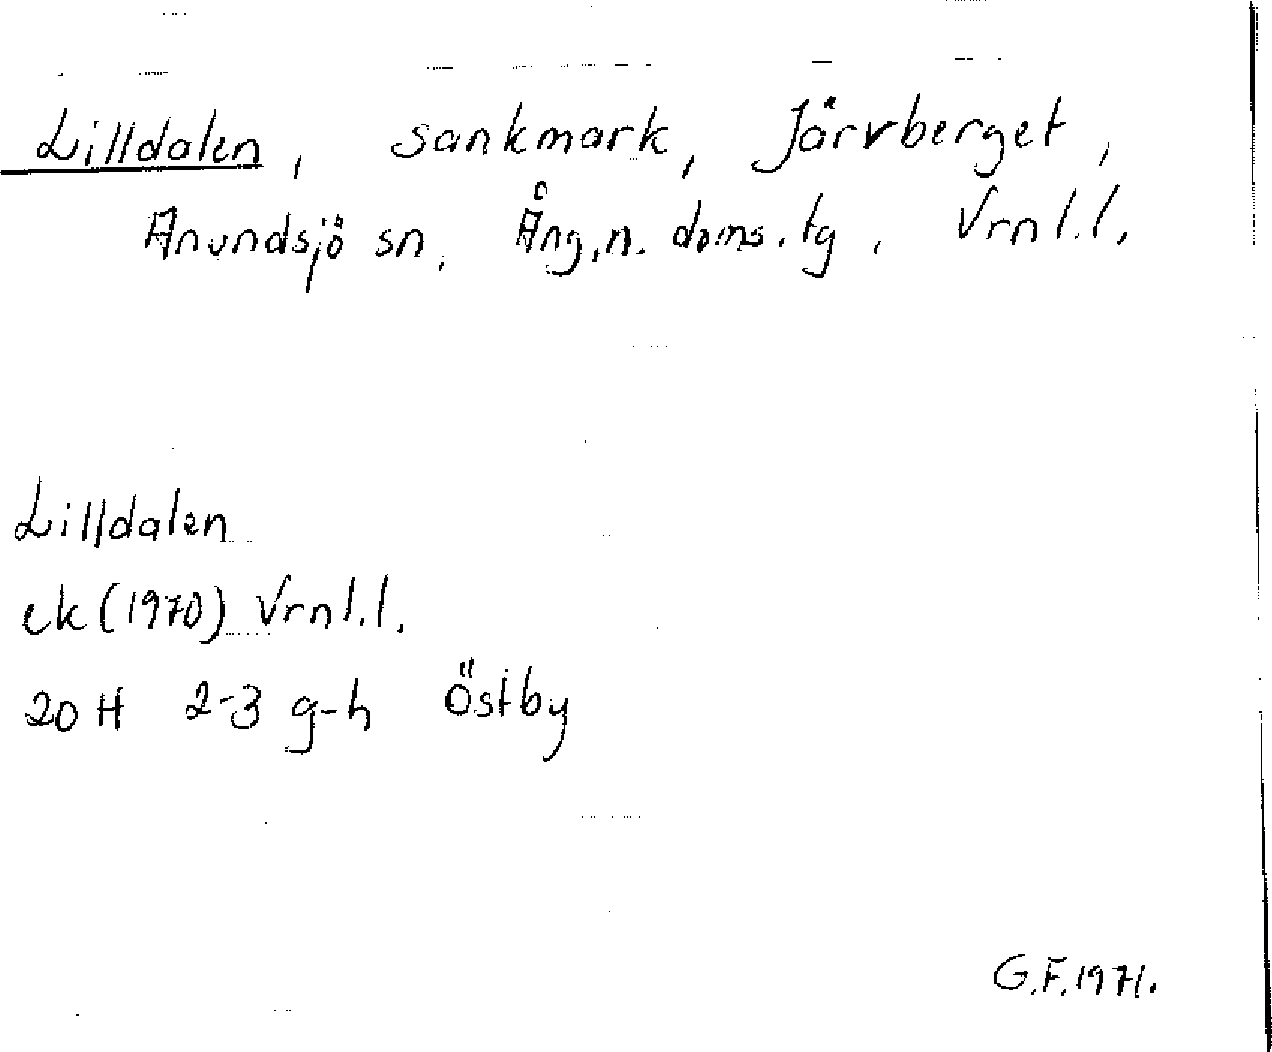 Lilldalen, sankmark, Järvberget,
Anundsjö sn, Ång.n. doms.tg, Vrnl.l.
Lilldalen
ek (1970) Vrnl.l.
20 H 2-3 g-h Östby
G.F. 1971.